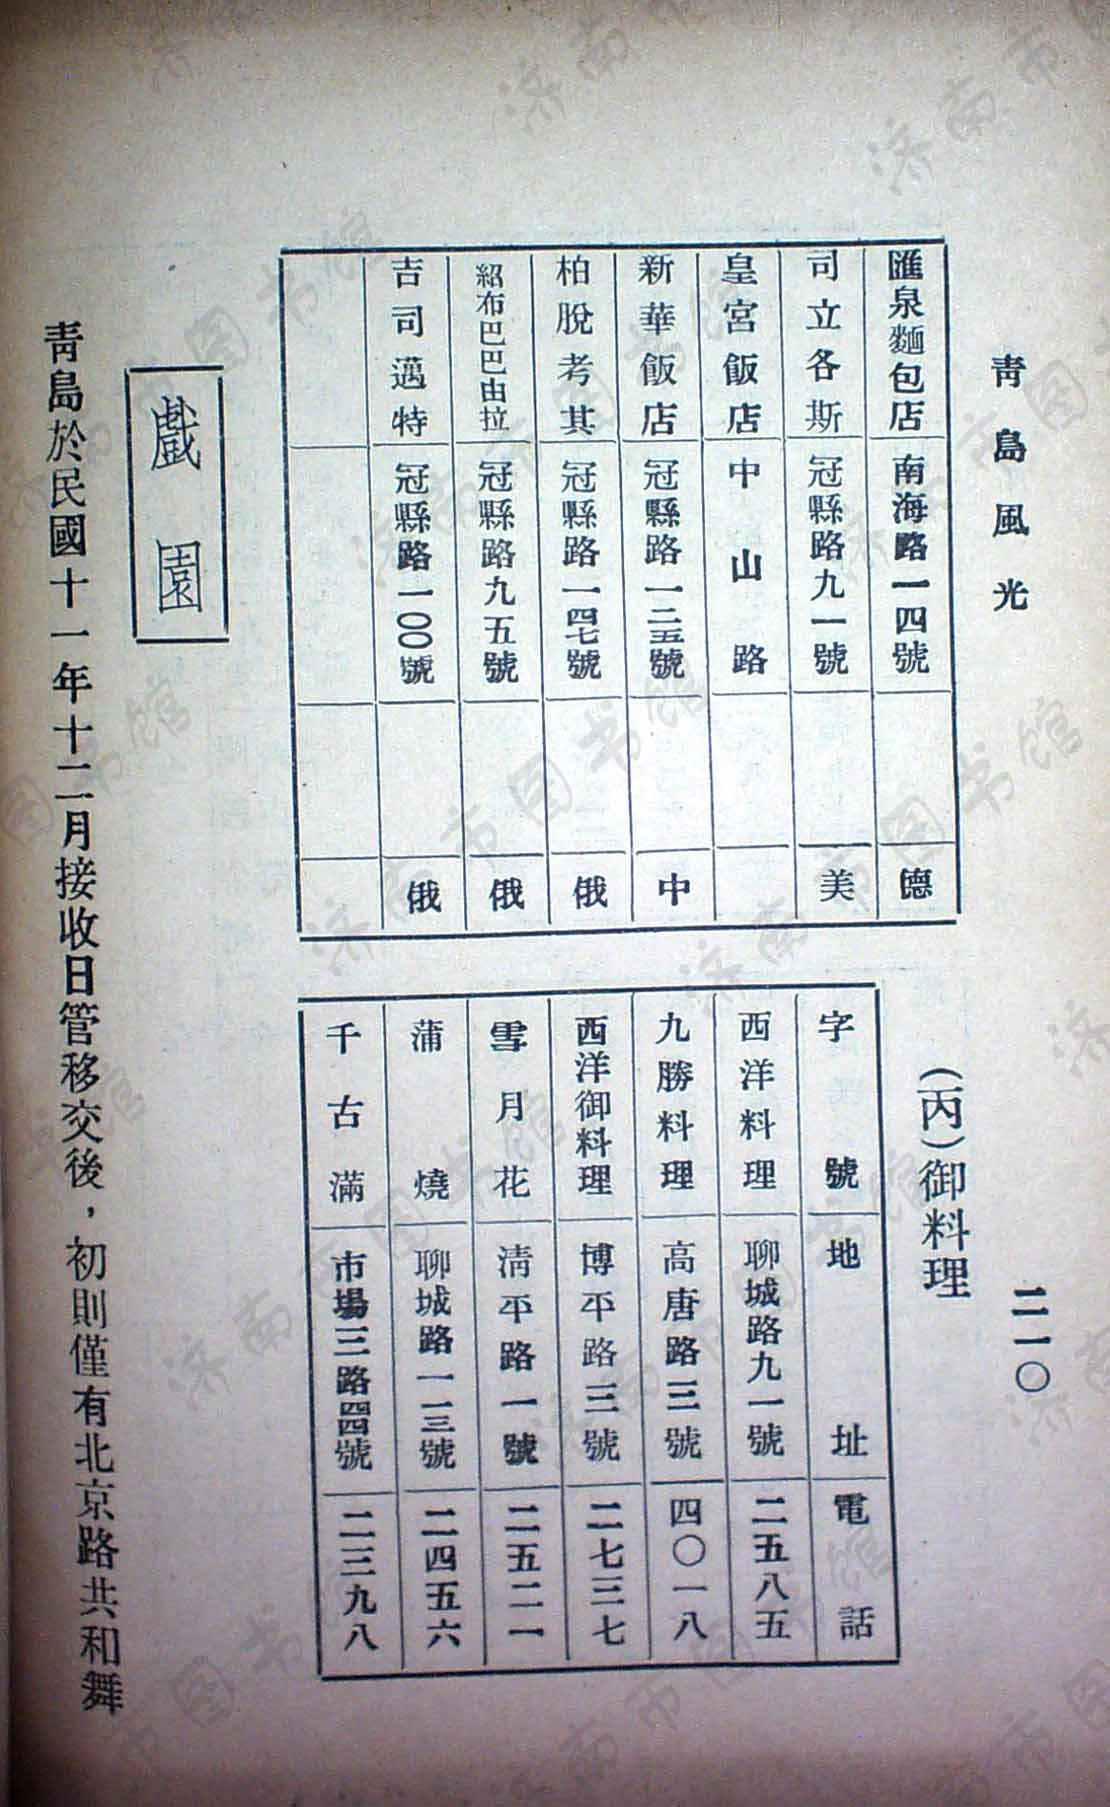 青島風光
二一〇
匯泉麵包店 南海路一四號 德
司立各斯 冠縣路九一號 美
皇宮飯店 中山路
新華飯店 冠縣路一二五號 中
柏脫考其 冠縣路一四七號 俄
紹布巴巴由拉 冠縣路九五號 俄
吉司邁特 冠縣路一〇〇號 俄
(丙)御料理
字號 地址 電話
西洋料理 聊城路九一號 二五八五
九勝料理 高唐路三號 四〇一八
西洋御料理 博平路三號 二七三七
雪月花 淸平路一號 二五二一
蒲燒 聊城路一一三號 二四五六
千古滿 市場三路四號 二三九八
戲園
青島於民國十一年十二月接收日管移交後，初則僅有北京路共和舞
济南市图书馆